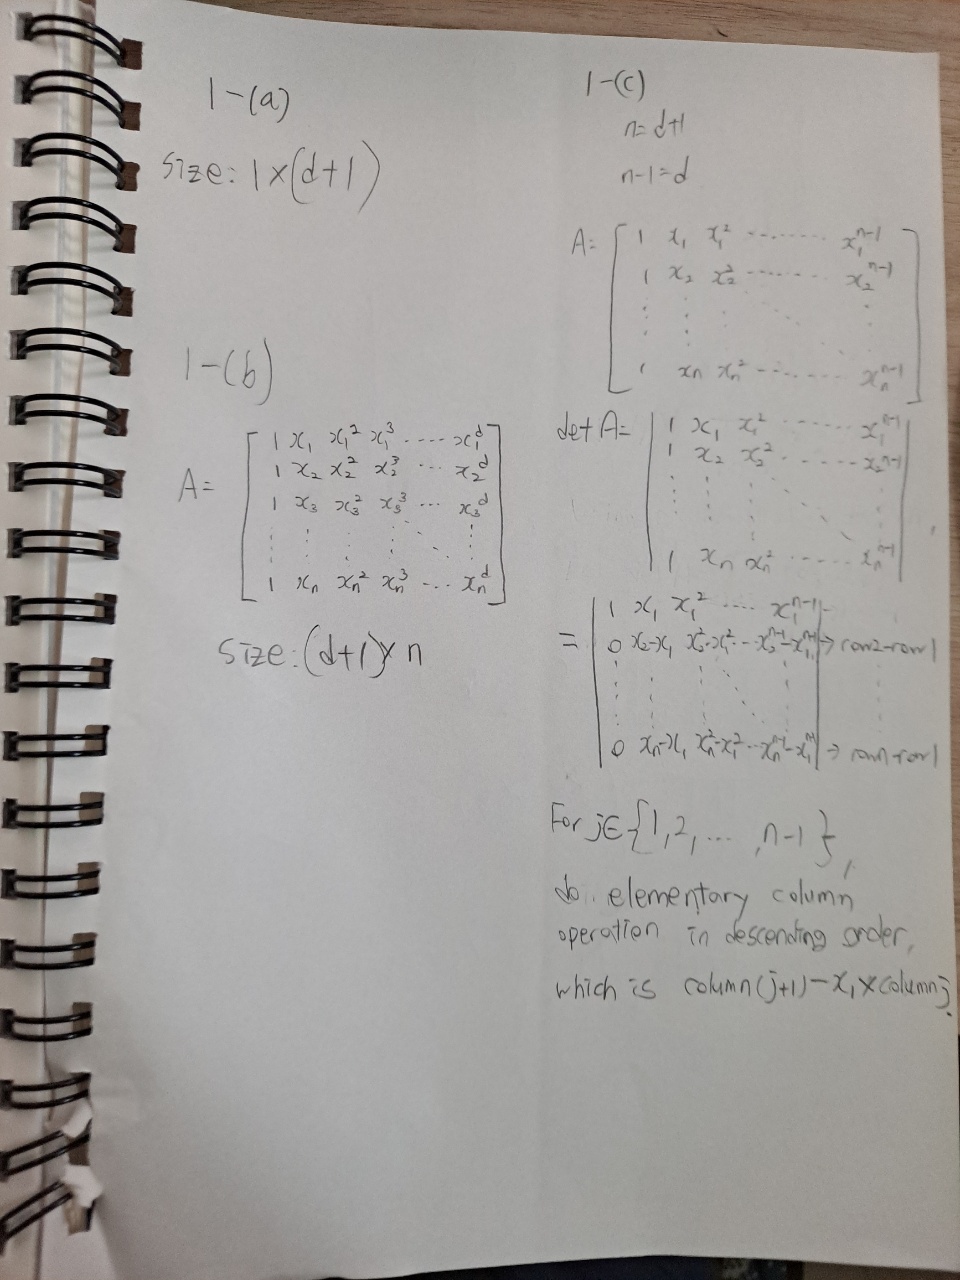 1-(a)
size: 1×(d+1)
1-(b)
A= [ 1 x₁ x₁² x₁³ ····· x₁ᵈ
1 x₂ x₂² x₂³ ··· x₂ᵈ
1 x₃ x₃² x₃³ ··· x₃ᵈ
⋮ ⋮ ⋮ ⋮ ⋱ ⋮
1 xₙ xₙ² xₙ³ ··· xₙᵈ ]
size: (d+1)×n
1-(c)
n=d+1
n-1=d
A= [ 1 x₁ x₁² ········· x₁ⁿ⁻¹
1 x₂ x₂² ········· x₂ⁿ⁻¹
⋮ ⋮ ⋮ ⋱ ⋮
1 xₙ xₙ² ········· xₙⁿ⁻¹ ]
det A= | 1 x₁ x₁² ······ x₁ⁿ⁻¹ |
| 1 x₂ x₂² ······ x₂ⁿ⁻¹ |
| ⋮ ⋮ ⋮ ⋱ ⋮ |
| 1 xₙ xₙ² ······ xₙⁿ⁻¹ |
= | 1 x₁ x₁² ···· x₁ⁿ⁻¹ |
| 0 x₂-x₁ x₂²-x₁² ··· x₂ⁿ⁻¹-x₁ⁿ⁻¹ | → row2-row1
| ⋮ ⋮ ⋮ ⋱ ⋮ |
| 0 xₙ-x₁ xₙ²-x₁² ··· xₙⁿ⁻¹-x₁ⁿ⁻¹ | → rown-row1
For j∈{1,2, ··· ,n-1},
do elementary column
operation in descending order,
which is column(j+1)-x₁×columnj.